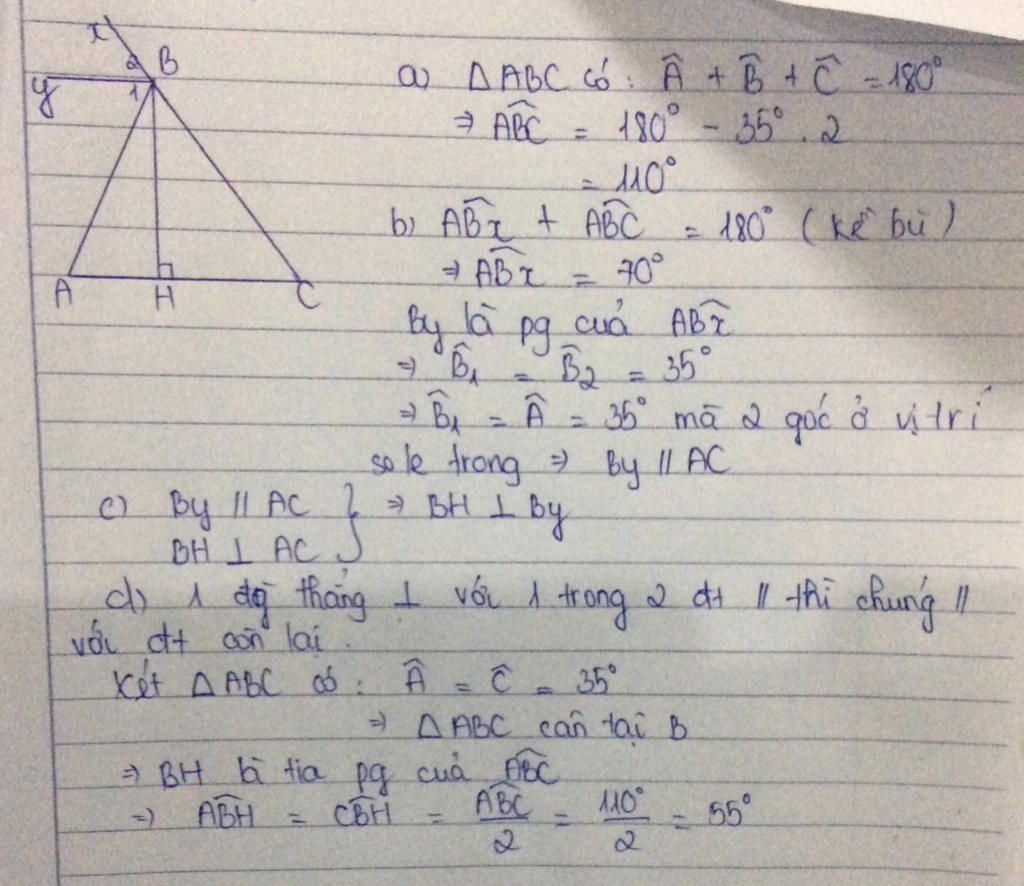 x
2 B
y
1
A H C
a) ΔABC có: Â + B̂ + Ĉ = 180°
⇒ ABC̑ = 180° - 35° . 2
= 110°
b) ABx̑ + ABC̑ = 180° (kề bù)
⇒ ABx̑ = 70°
By là pg cuả ABx̑
⇒ B̂₁ = B̂₂ = 35°
⇒ B̂₁ = Â = 35° mà 2 góc ở vị trí
so le trong ⇒ By // AC
c) By // AC } ⇒ BH ⊥ By
BH ⊥ AC
d) 1 đg thẳng ⊥ với 1 trong 2 đt // thì chúng //
với đt còn lại.
Xét ΔABC có: Â = Ĉ = 35°
⇒ ΔABC cân tại B
⇒ BH là tia pg cuả ABC̑
⇒ ABH̑ = CBH̑ = ABC̑/2 = 110°/2 = 55°